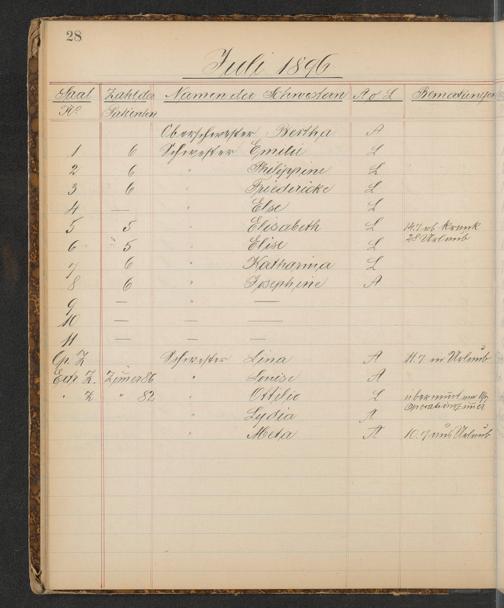 28
Juli 1896
Saal No Zahl der Patienten Namen der Schwestern A o L Bemerkungen
Oberschwester Bertha A
1 6 Schwester Emilie L
2 6 " Philippine L
3 6 " Friedericke L
4 — " Else L
5 5 " Elisabeth L 14.7. ab krank
6 5 " Elise L 28 Urlaub
7 6 " Katharina L
8 6 " Josephine A
9 — " —
10 — " —
11 — " —
Op. Z. Schwester Lina A 11.7. in Urlaub
Ech. Z. Zimer 86 " Louise A
" Z " 82 " Ottilie L übernimt
Operationszimer
" Lydia A
" Meta A 10.7 aus Urlaub